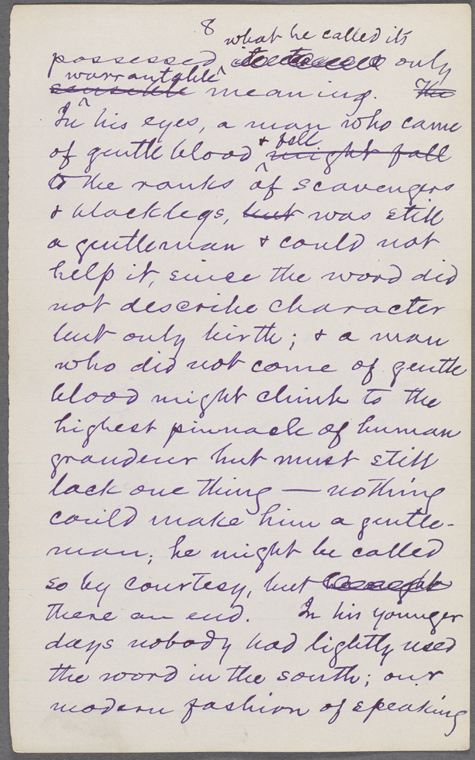 8
what he called its
possessed only
warrantable
sensible meaning. The
In his eyes, a man who came
of gentle blood & fell might fall
to the ranks of scavengers
& blacklegs, but was still
a gentleman & could not
help it, since the word did
not describe character
but only birth; & a man
who did not come of gentle
blood might climb to the
highest pinnacle of human
grandeur but must still
lack one thing — nothing
could make him a gentle-
man; he might be called
so by courtesy, but
there an end. In his younger
days nobody had lightly used
the word in the south; our
modern fashion of speaking